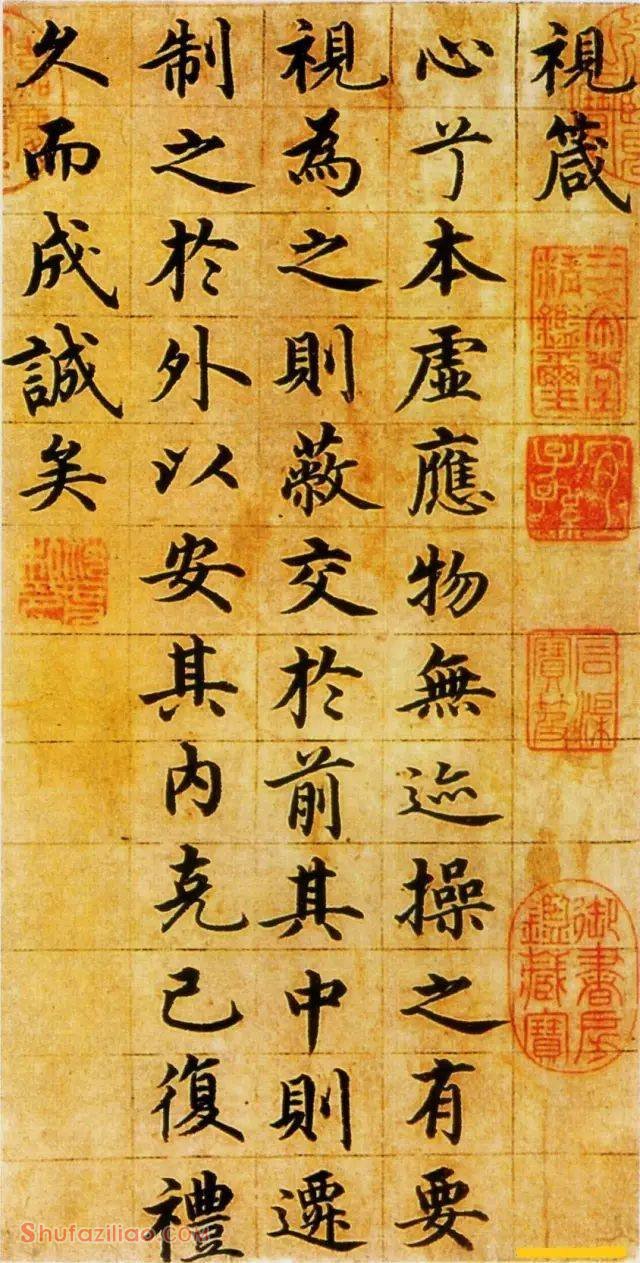 視箴
心兮本虛應物無迹操之有要
視為之則蔽交於前其中則遷
制之於外以安其內克己復禮
久而成誠矣
三希堂精鑑璽
宜子孫
石渠寶笈
御書房鑑藏寶
Shufaziliao.com